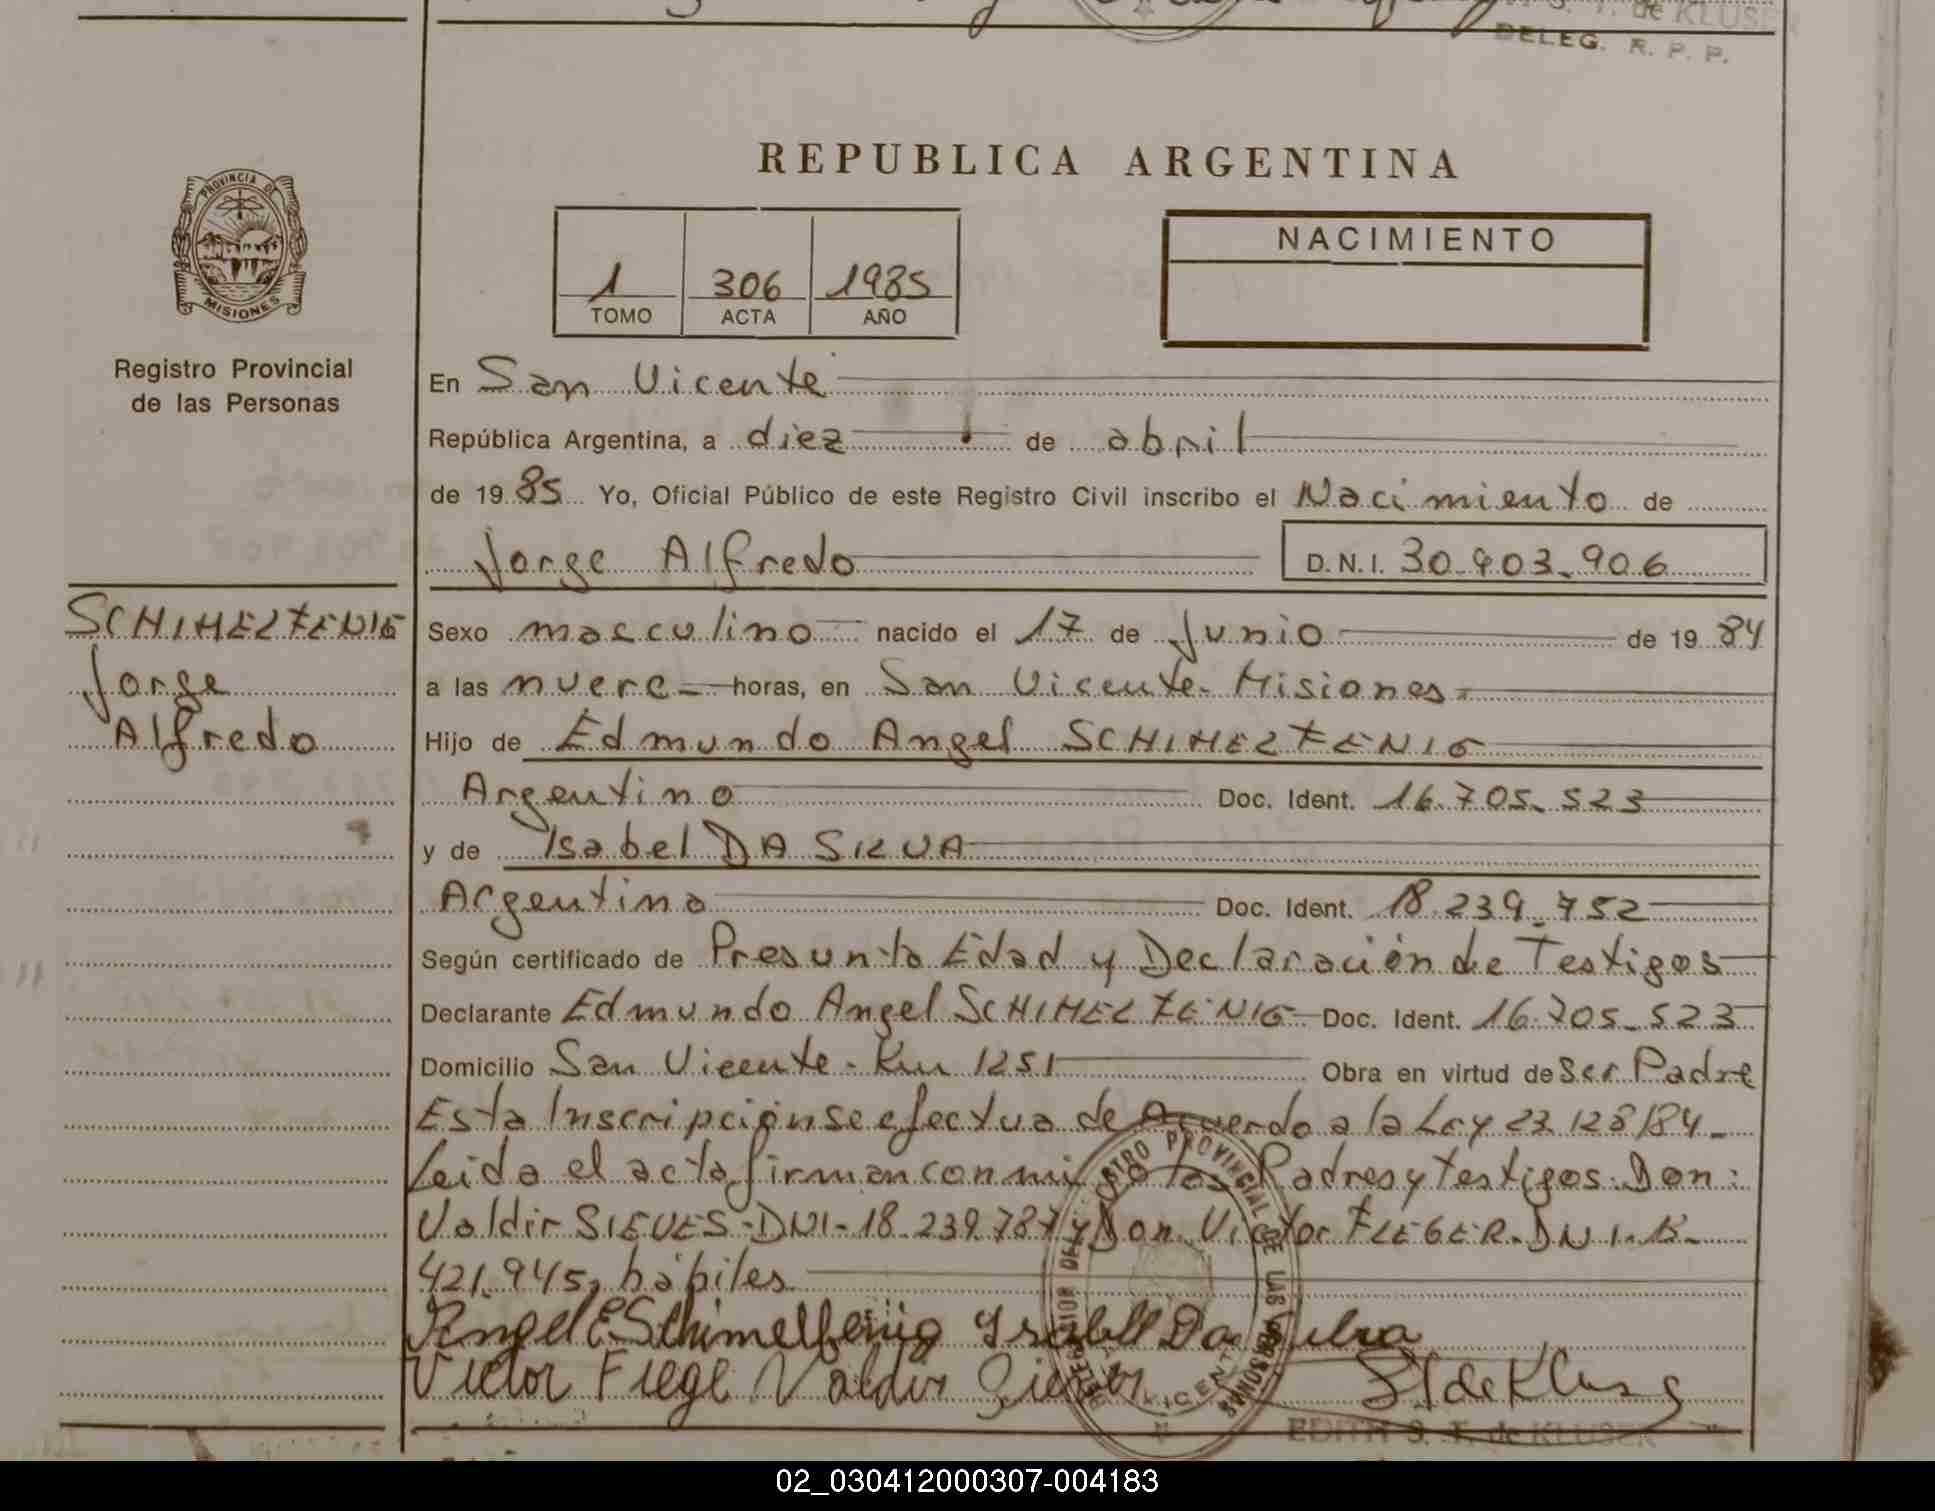 de KLUSER
DELEG. R. P. P.
REPUBLICA ARGENTINA
PROVINCIA DE
MISIONES
1 306 1985
TOMO ACTA AÑO
NACIMIENTO
Registro Provincial
de las Personas
En San Vicente
República Argentina, a diez de abril
de 19 85 Yo, Oficial Público de este Registro Civil inscribo el Nacimiento de
Jorge Alfredo D.N.I. 30.903.906
SCHIMELFENIG
Jorge
Alfredo
Sexo masculino nacido el 17 de Junio de 19 84
a las nueve horas, en San Vicente-Misiones
Hijo de Edmundo Angel SCHIMELFENIG
Argentino Doc. Ident. 16.705.523
y de Isabel DA SILVA
Argentina Doc. Ident. 18.239.752
Según certificado de Presunta Edad y Declaración de Testigos
Declarante Edmundo Angel SCHIMELFENIG Doc. Ident. 16.705.523
Domicilio San Vicente - Km 1251 Obra en virtud de Ser Padre
Esta Inscripción se efectua de Acuerdo a la Ley 23.128/84-
Leida el acta firman conmigo los Padres y testigos: Don:
Valdir SIEVES-DNI-18.239.787 y Don Victor FLEGER-DNI-
421.945, hábiles
Angel E Schimelfenig Isabel Da Silva
Victor Valdir
REGISTRO PROVINCIAL DE LAS PERSONAS
EDITH S. T. de KLUSER
02_030412000307-004183